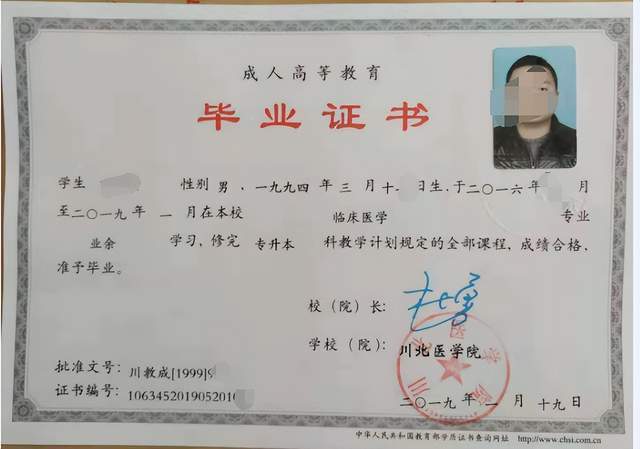 成人高等教育
毕业证书
学生 性别 男 , 一九九四 年 三 月 十 日生, 于二〇一六 年 月
至二〇一九 年 一 月在本校 临床医学 专业
业余 学习, 修完 专升本 科教学计划规定的全部课程, 成绩合格,
准予毕业。
校（院）长:
学校（院）: 川北医学院
批准文号: 川教成[1999]
证书编号: 1063452019052010
二〇一九 年 一 月 十九日
中华人民共和国教育部学历证书查询网址 http://www.chsi.com.cn